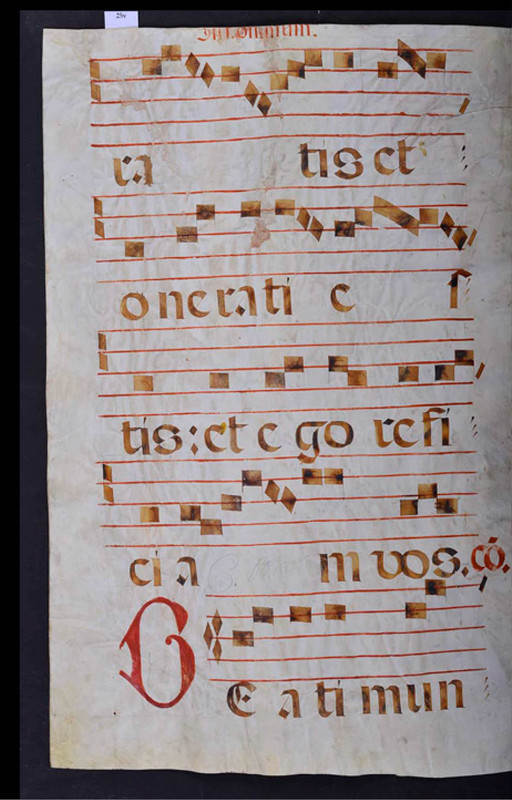 25v
ra tis et
onerati e s
tis: et ego refi
ci a m vos. cõ.
B E a ti mun